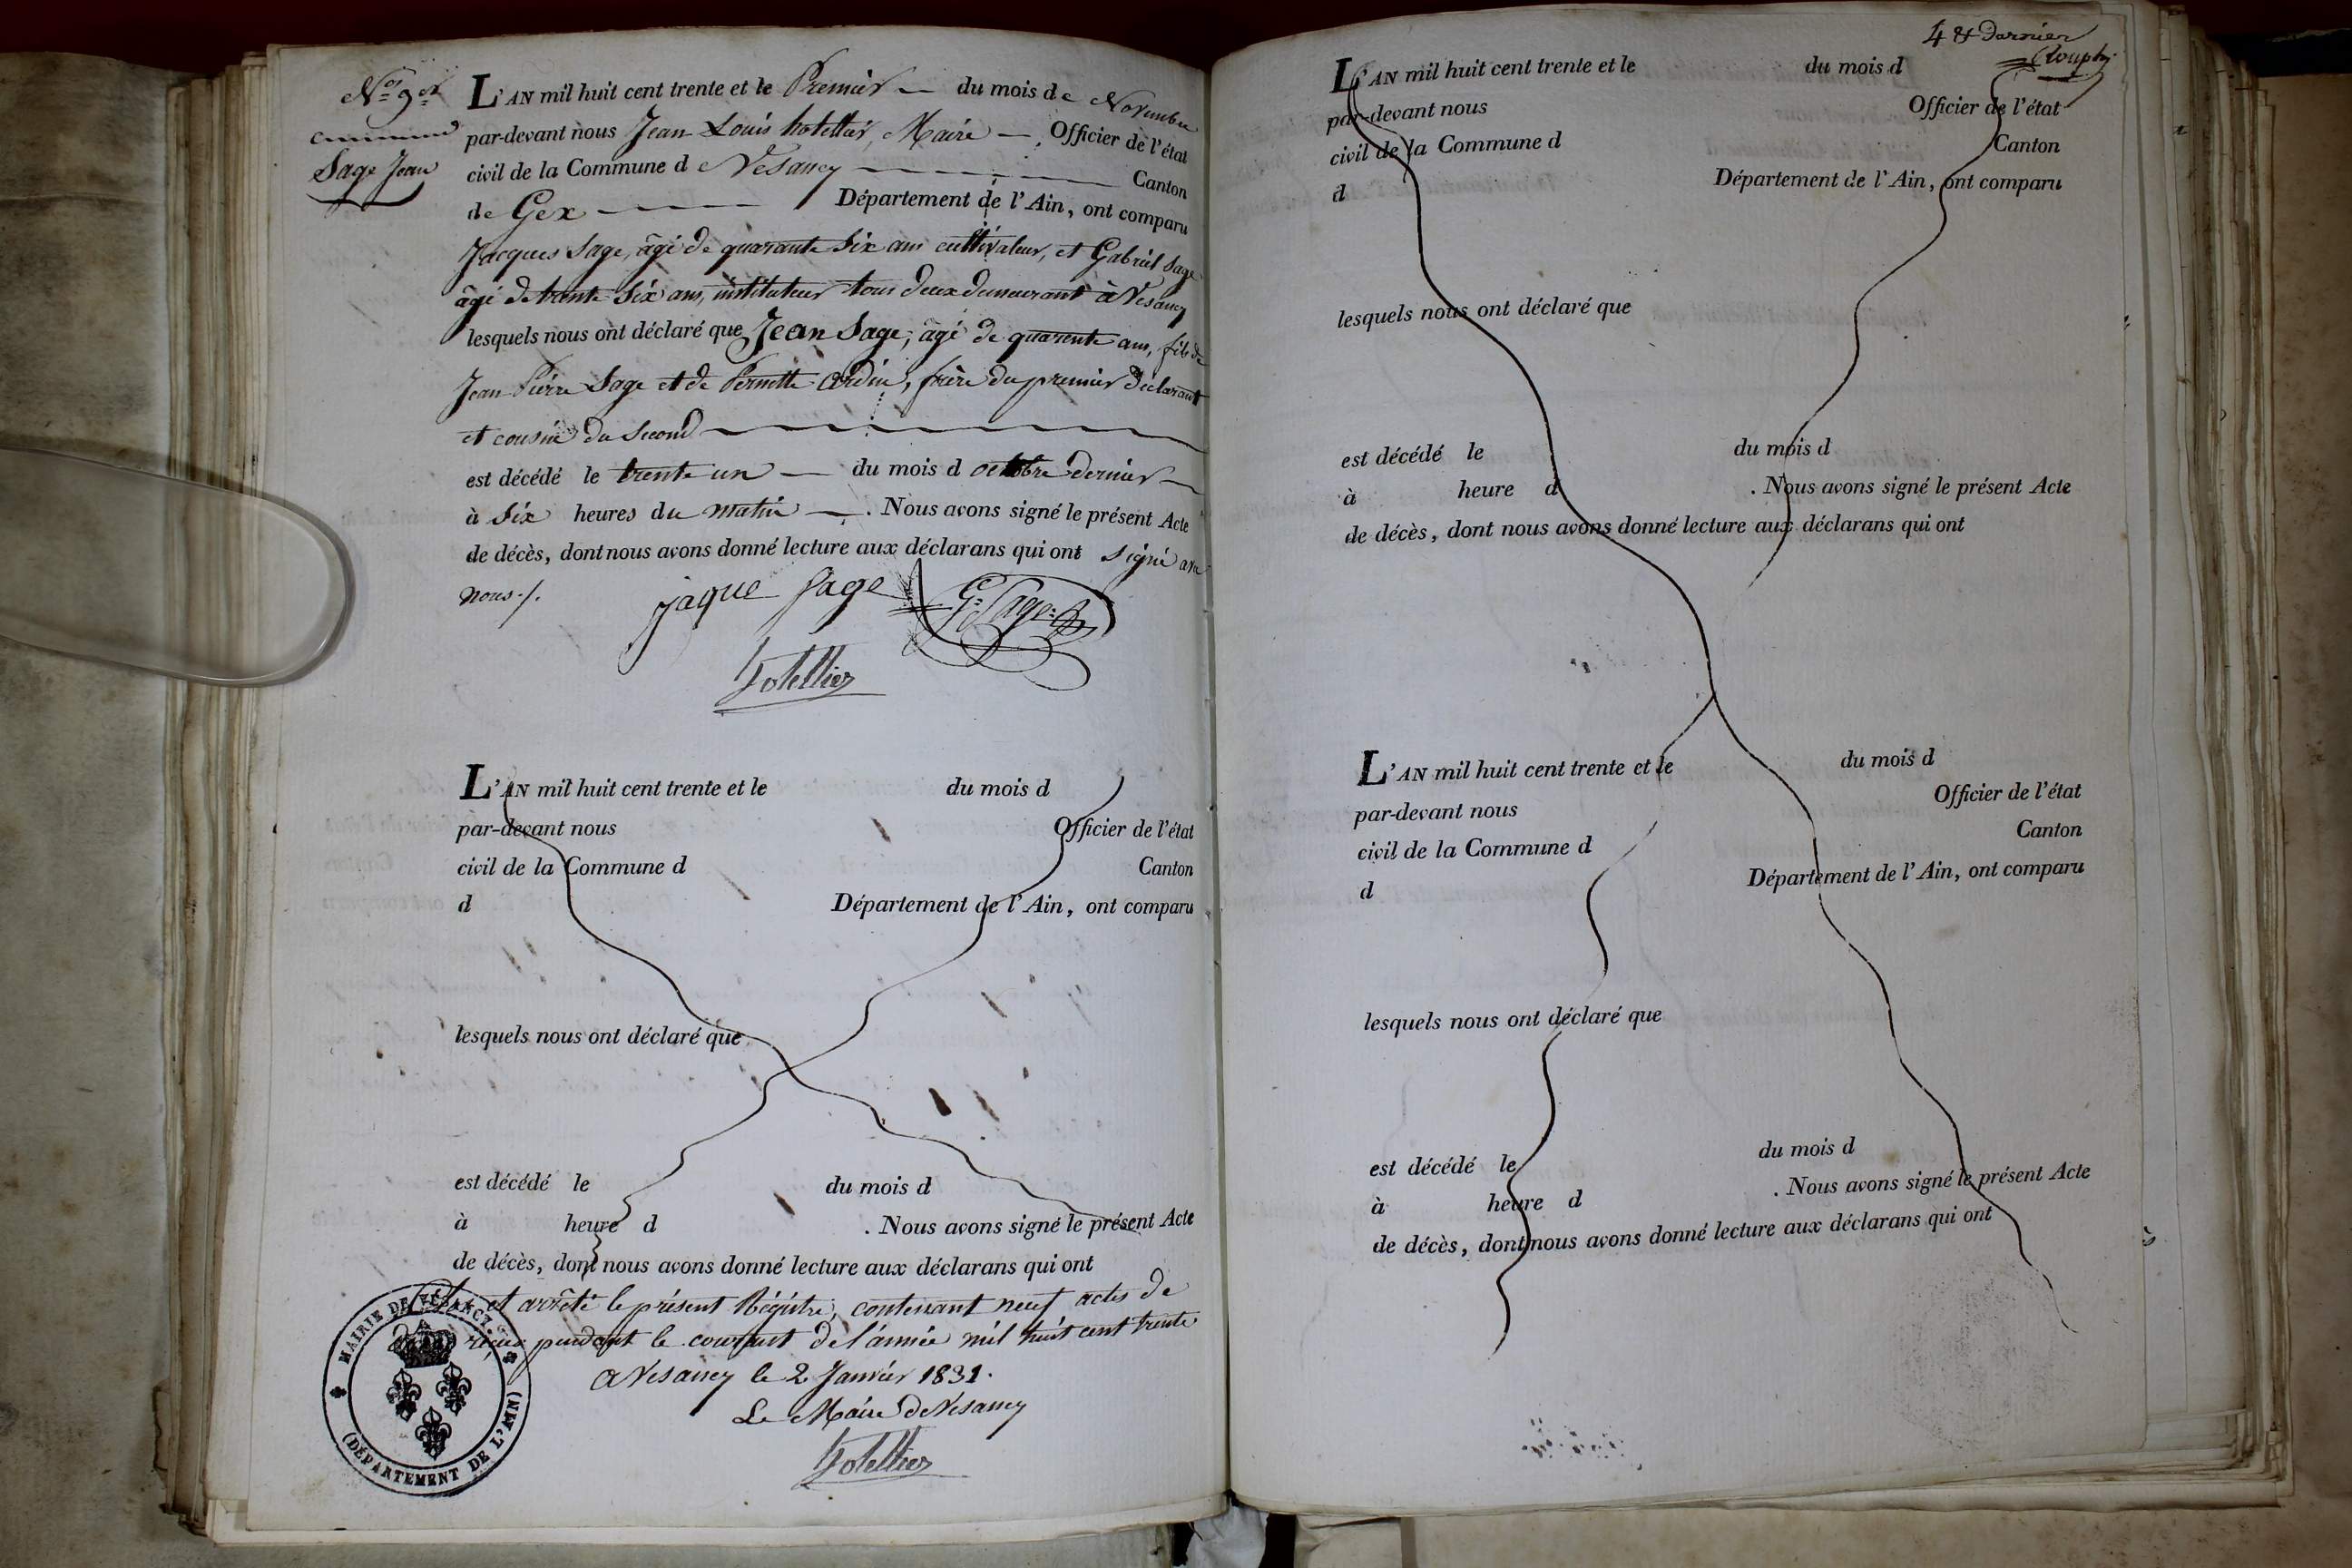 N.º 9.
Sage Jean
L'AN mil huit cent trente et le Premier du mois de Novembre
par-devant nous Jean Louis hotellier, Maire Officier de l'état
civil de la Commune de Vesancy Canton
de Gex Département de l'Ain, ont comparu
Jacques Sage, âgé de quarante six ans cultivateur, et Gabriel Sage
âgé de trente six ans, instituteur tous deux demeurant à Vesancy
lesquels nous ont déclaré que Jean Sage, âgé de quarente ans, fils de
Jean Pierre Sage et de Pernette, frère du premier déclarant
et cousin du second
est décédé le trente un du mois d octobre dernier
à six heures du matin. Nous avons signé le présent Acte
de décès, dont nous avons donné lecture aux déclarans qui ont signé avec
nous ./.
jaque sage G. Sage
hotellier
L'AN mil huit cent trente et le du mois d
par-devant nous Officier de l'état
civil de la Commune d Canton
d Département de l'Ain, ont comparu
lesquels nous ont déclaré que
est décédé le du mois d
à heure d . Nous avons signé le présent Acte
de décès, dont nous avons donné lecture aux déclarans qui ont
Clos et arrêté le présent Régistre, contenant neuf actes de
reçus pendant le courant de l'année mil huit cent trente
A Vesancy le 2 Janvier 1831.
Le Maire de Vesancy
hotellier
MAIRIE DE VÉSANCY
(DÉPARTEMENT DE L'AIN)
4 & dernier
L'AN mil huit cent trente et le du mois d
par-devant nous Officier de l'état
civil de la Commune d Canton
d Département de l'Ain, ont comparu
lesquels nous ont déclaré que
est décédé le du mois d
à heure d . Nous avons signé le présent Acte
de décès, dont nous avons donné lecture aux déclarans qui ont
L'AN mil huit cent trente et le du mois d
par-devant nous Officier de l'état
civil de la Commune d Canton
d Département de l'Ain, ont comparu
lesquels nous ont déclaré que
est décédé le du mois d
à heure d . Nous avons signé le présent Acte
de décès, dont nous avons donné lecture aux déclarans qui ont